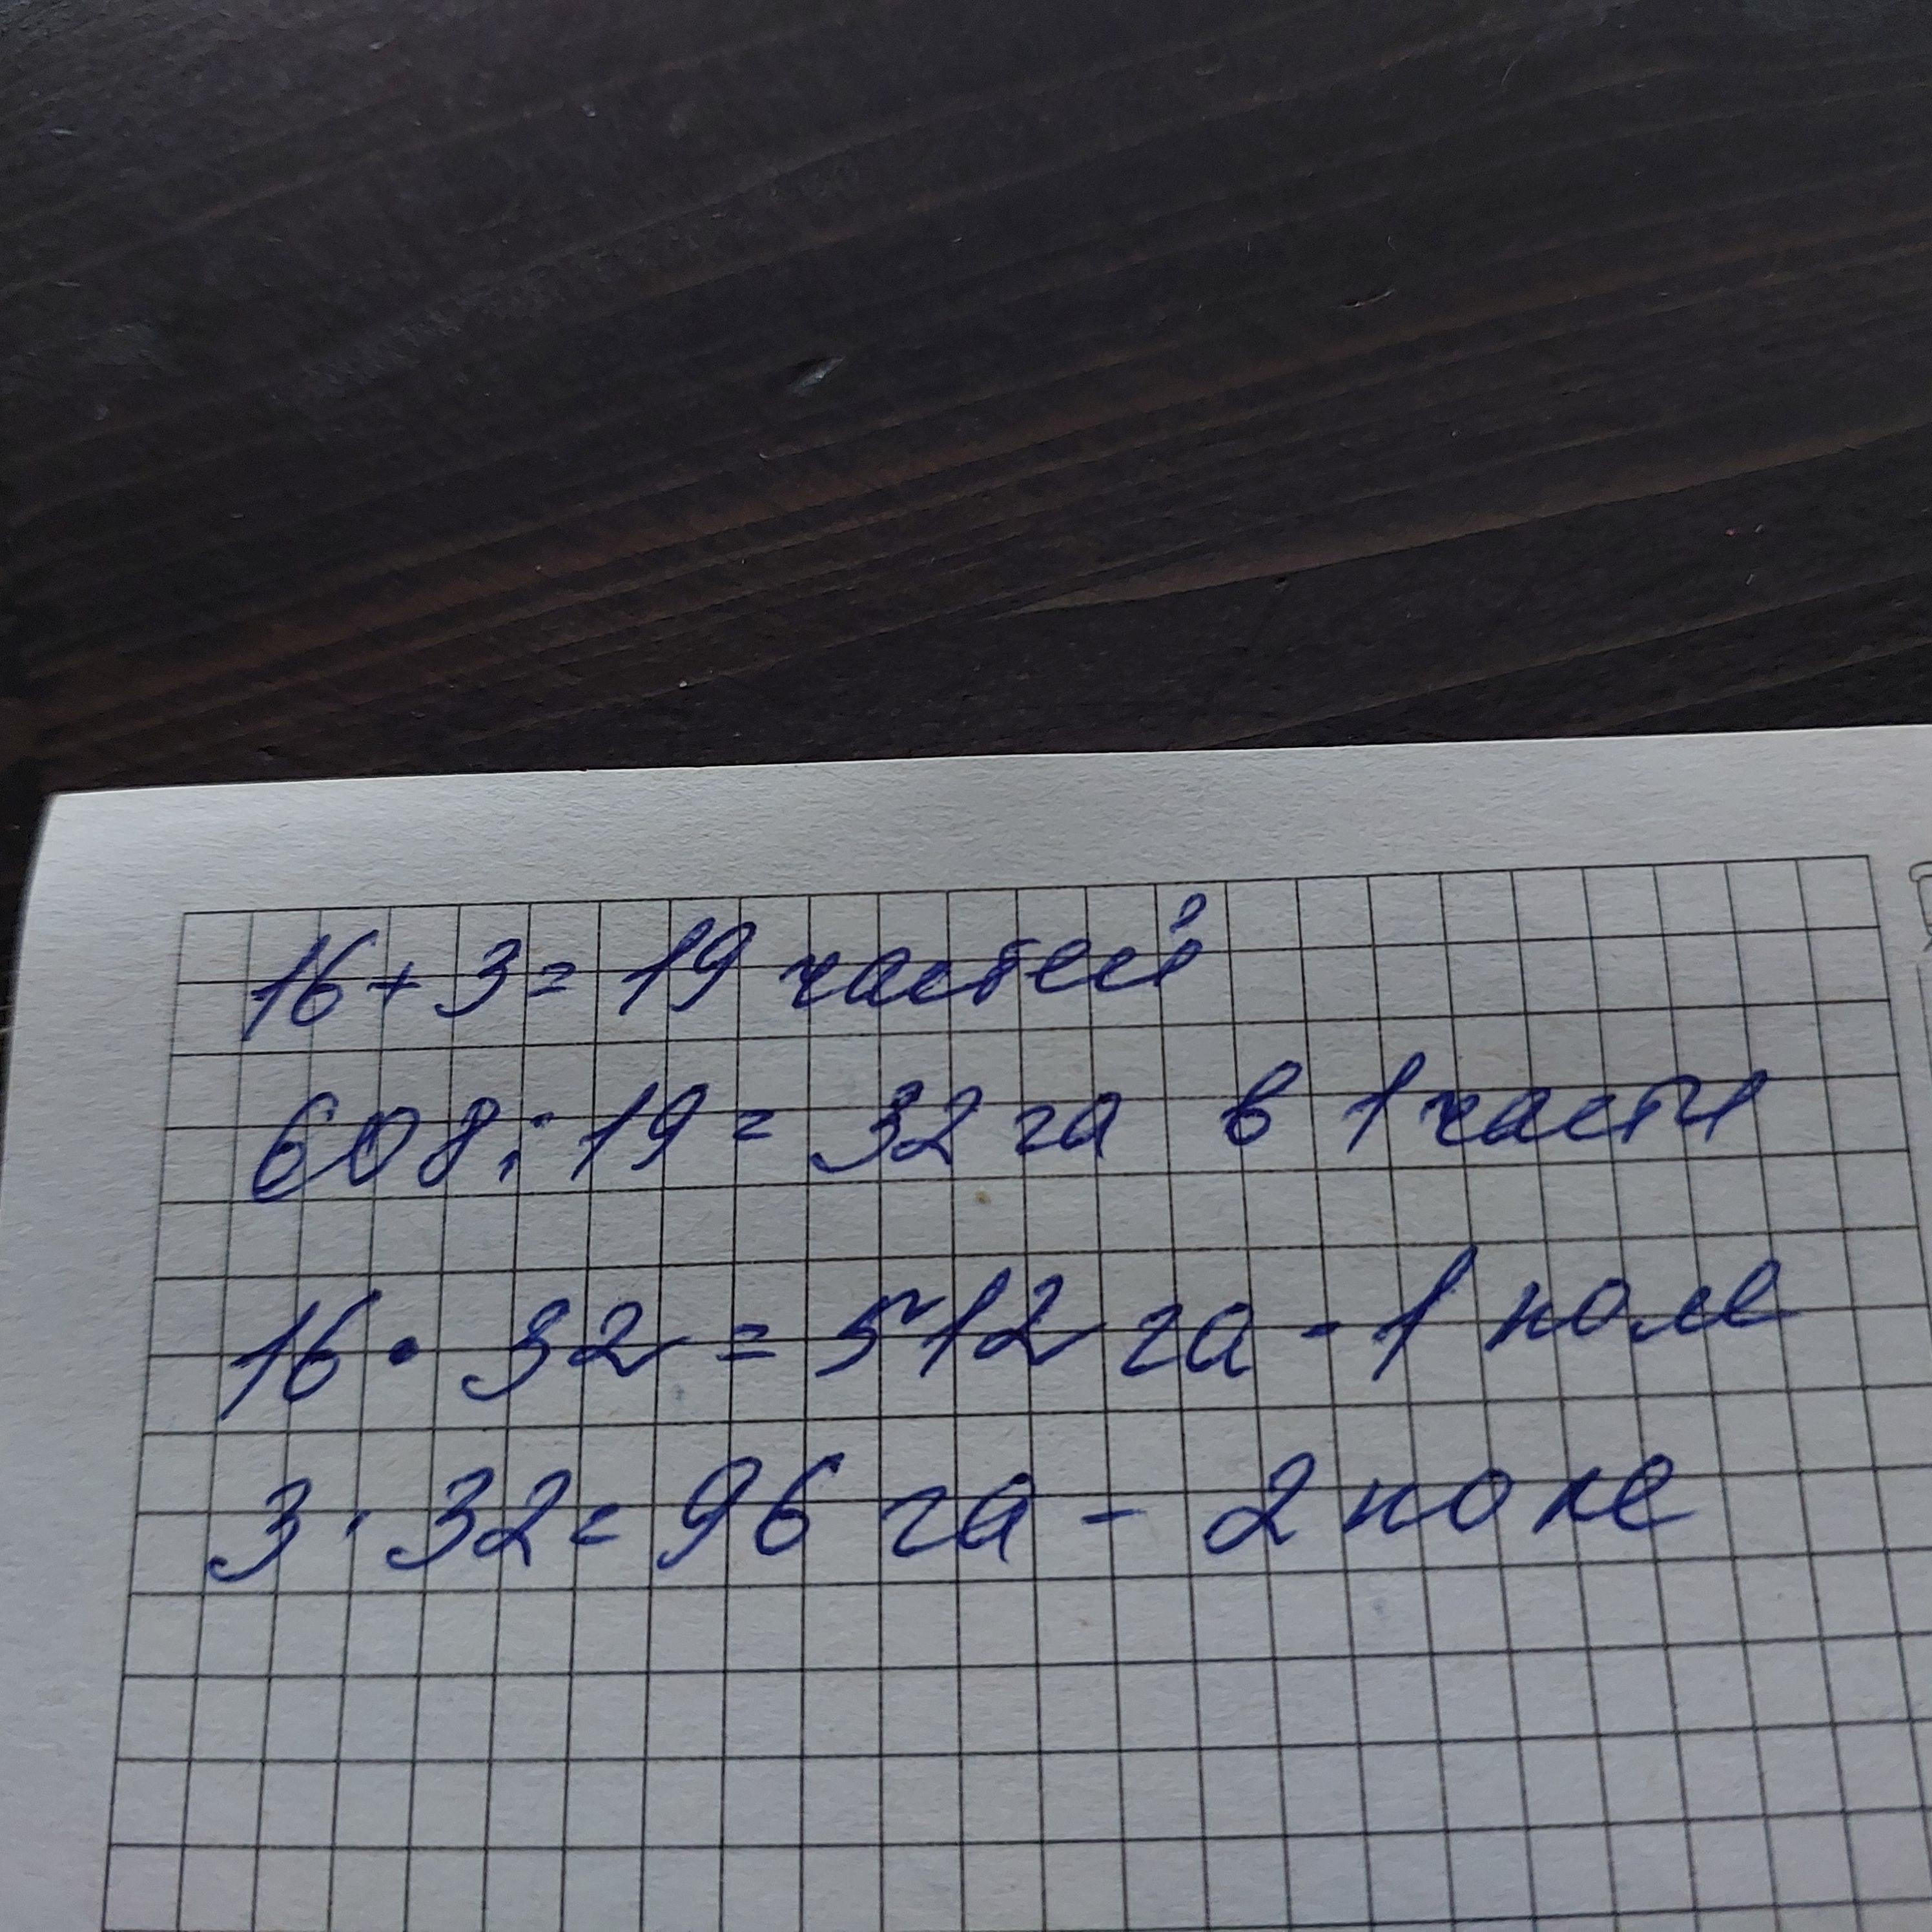 16 + 3 = 19 частей
608 : 19 = 32 га в 1 части
16 · 32 = 512 га - 1 поле
3 · 32 = 96 га - 2 поле